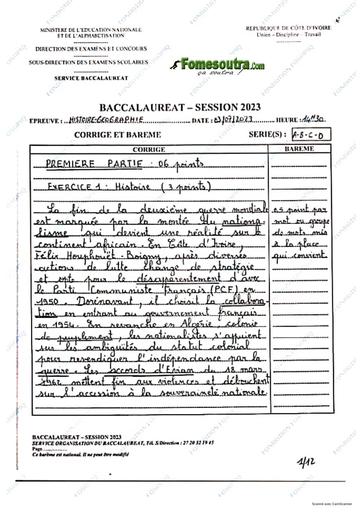 MINISTERE DE L'EDUCATION NATIONALE
ET DE L'ALPHABETISATION
DIRECTION DES EXAMENS ET CONCOURS
SOUS-DIRECTION DES EXAMENS SCOLAIRES
SERVICE BACCALAUREAT
REPUBLIQUE DE CÔTE D'IVOIRE
Union – Discipline – Travail
Fomesoutra.com
ça soutra !
BACCALAUREAT – SESSION 2023
EPREUVE : HISTOIRE-GEOGRAPHIE DATE : 03/07/2023 HEURE : 14H30
CORRIGE ET BAREME SERIE(S) : A-B-C-D
CORRIGE BAREME
PREMIERE PARTIE : 06 points
EXERCICE 1 : Histoire (3 points)
La fin de la deuxième guerre mondiale 0,5 point par
est marquée par la montée du natiOna- mot ou groupe
lisme qui devient une réalité sur le de mots mis
continent africain. En Côte d'Ivoire, à la place
Félix Houphouët-Boigny, après diverses qui convient.
actions de lutte change de stratégie
et opte pour le désapparentement d'avec
le Parti Communiste Français (P.C.F) en
1950. Dorénavant, il choisit la collabora-
tion en entrant au gouvernement français
en 1954. En revanche en Algérie, colonie
de peuplement, les nationalistes s'appuient
sur les ambiguïtés du statut colonial
pour revendiquer l'indépendance par la
guerre. Les accords d'Evian du 18 mars
1962 mettent fin aux violences et débouchent
sur l'accession à la souveraineté nationale
BACCALAUREAT – SESSION 2023
SERVICE ORGANISATION DU BACCALAUREAT, Tél. S/Direction : 27 20 32 19 45
Page
Ce barème est national. Il ne peut être modifié
1/12
Scanné avec CamScanner